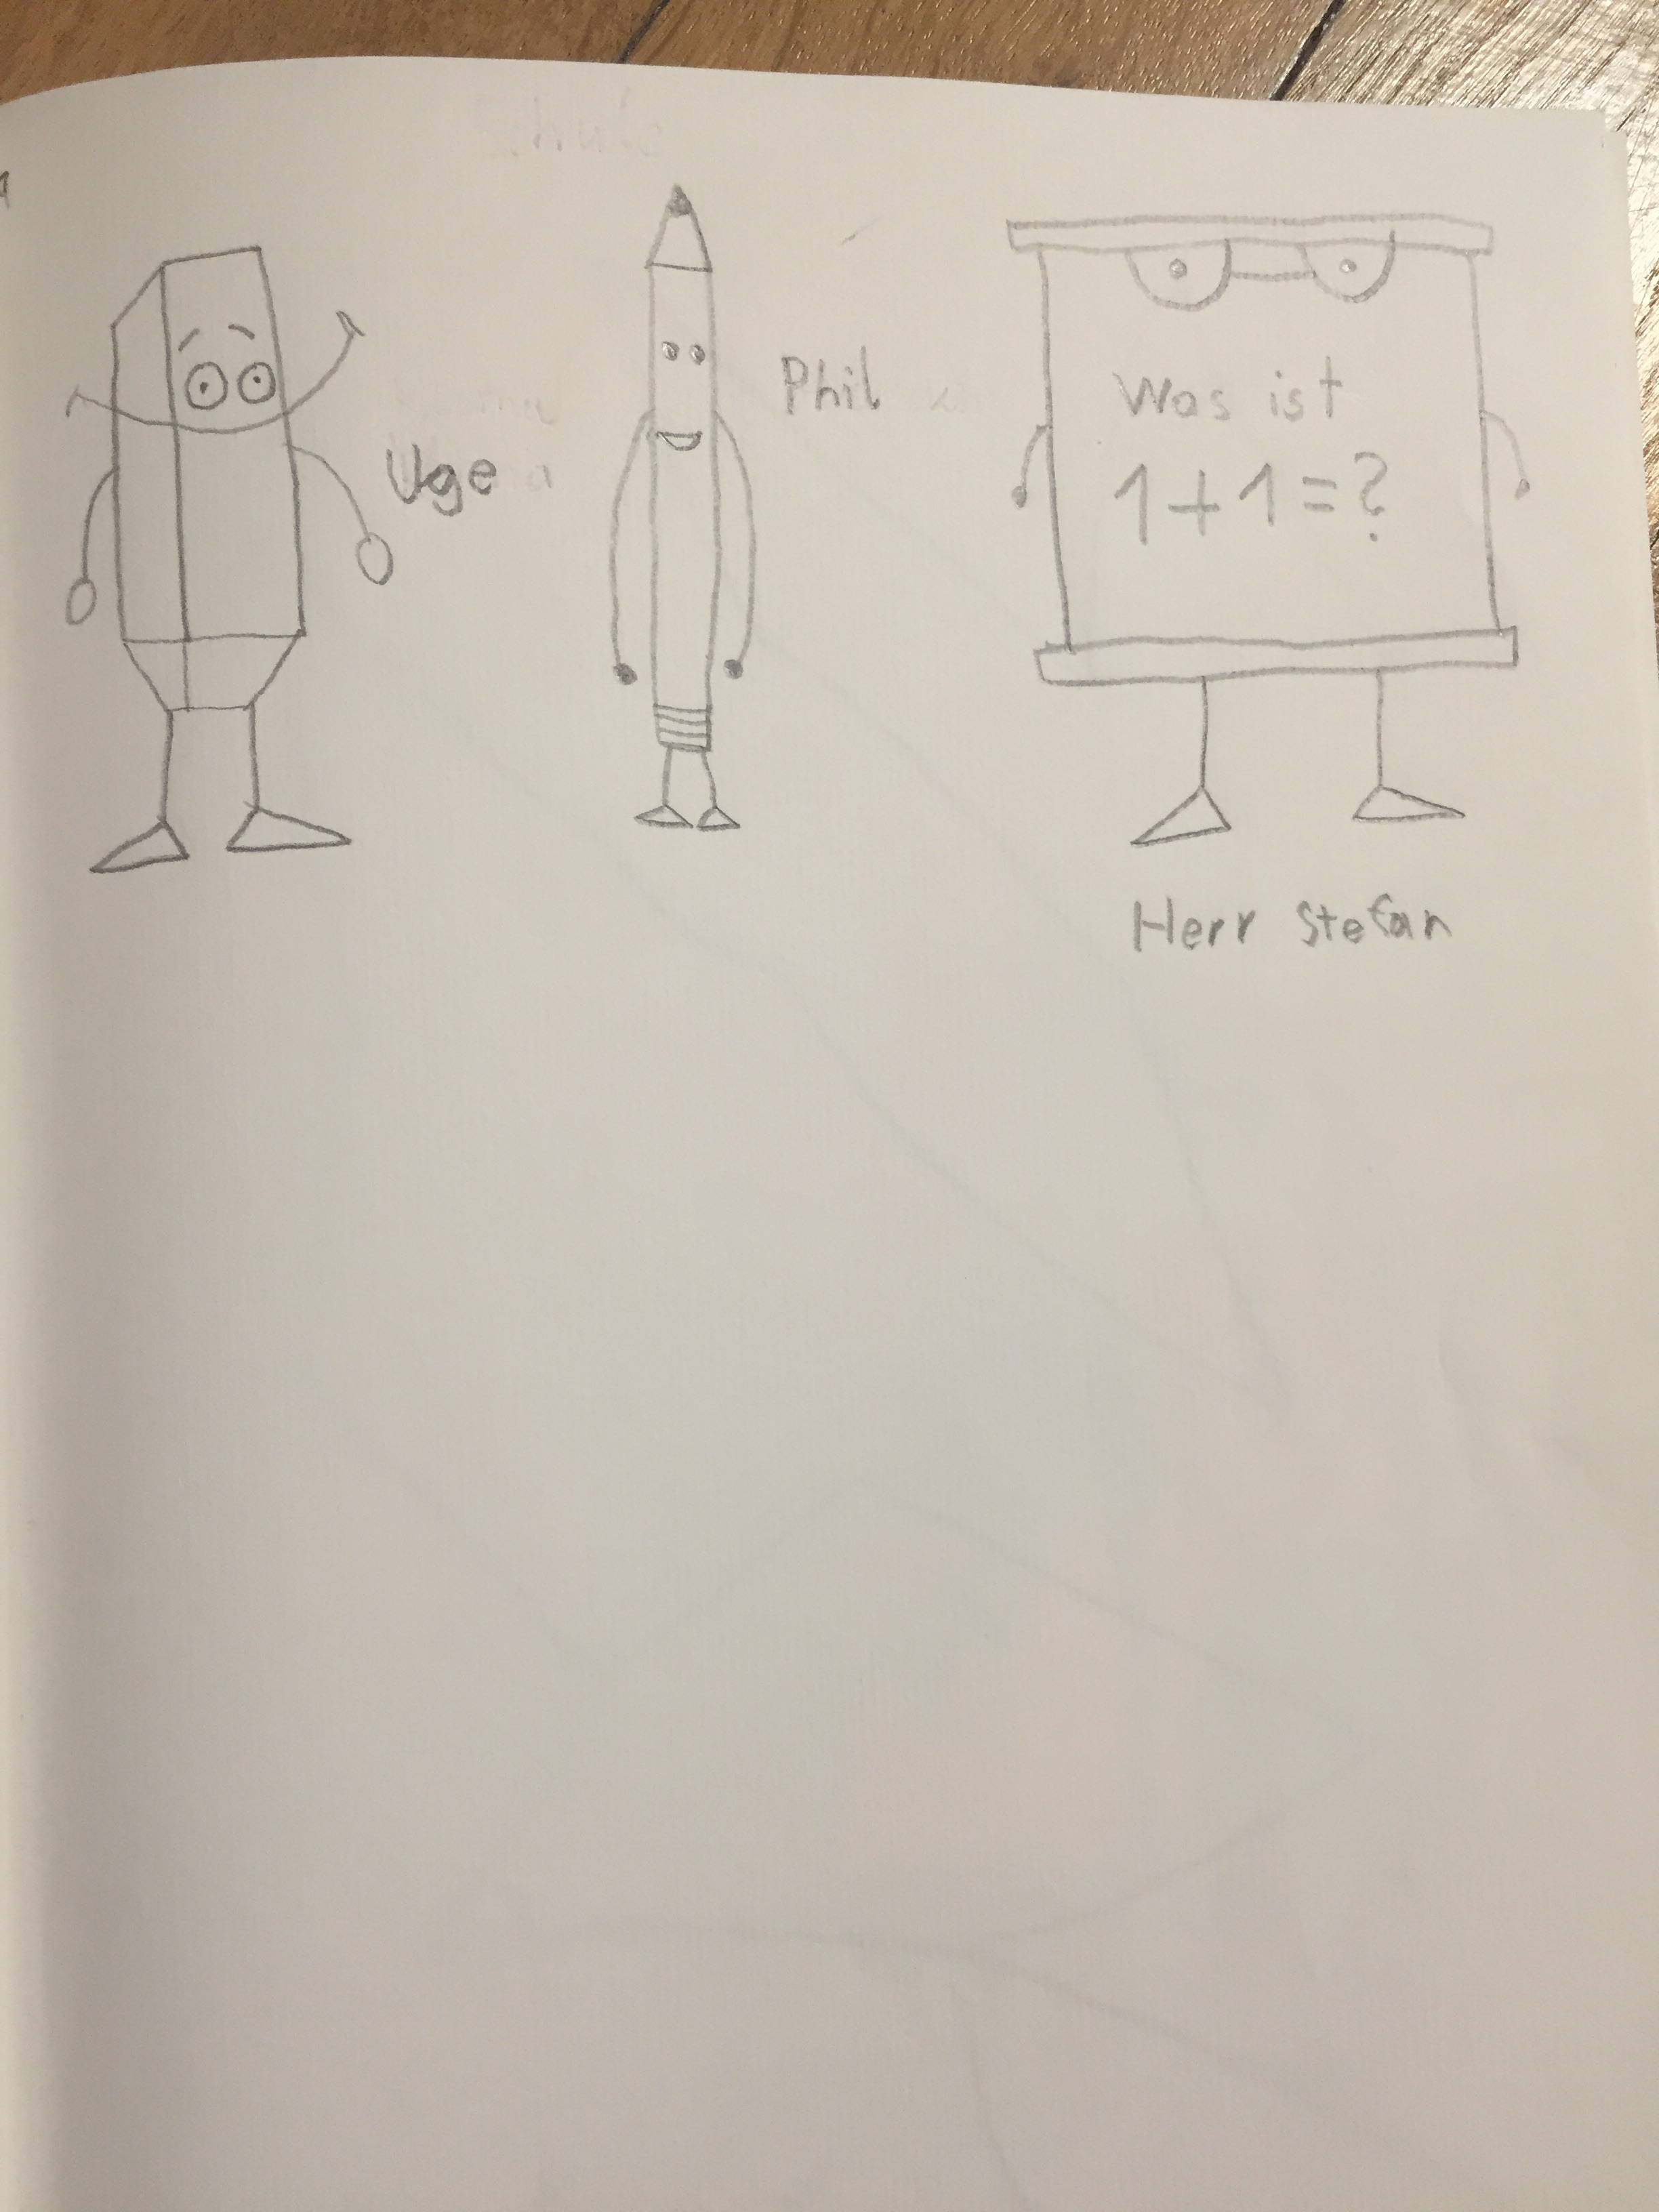 Uge
Phil
Was ist
1+1=?
Herr Stefan